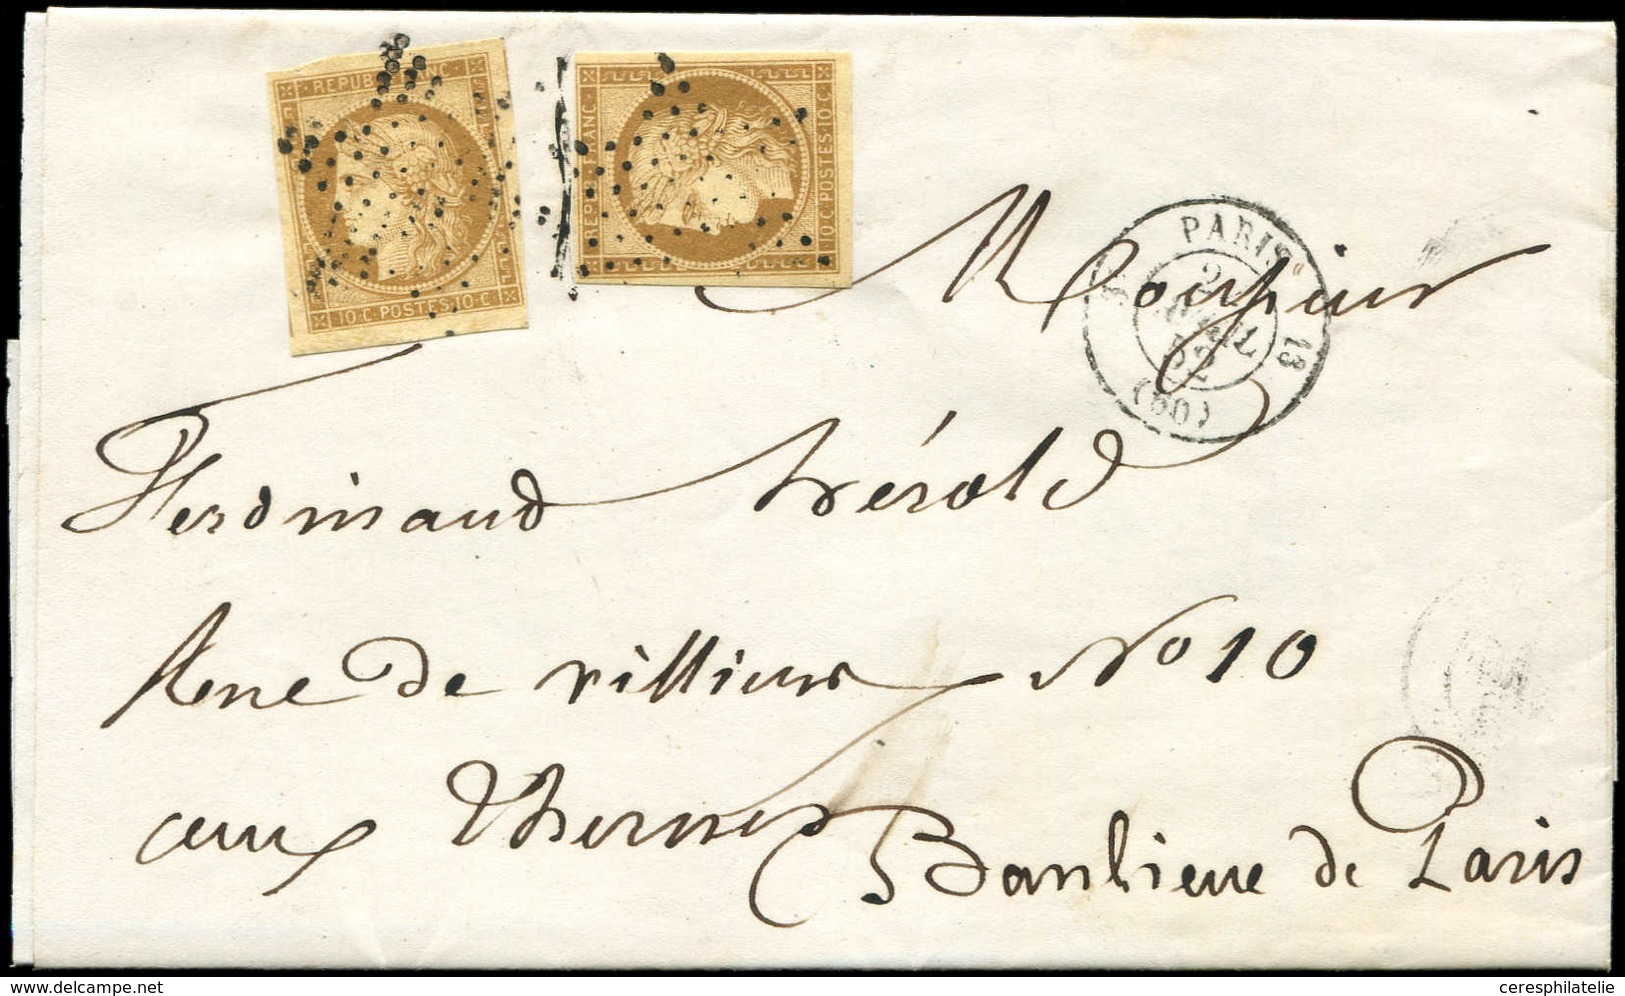 REPUB FRANC
10·C·POSTES·10·C
REPUB FRANC
10·C·POSTES·10·C
PARIS
13
52
(60)
Monsieur
Ferdinand hérold
Rue de villiers No 10
aux Thernes Banlieue de Paris
www.delcampe.net
ceresphilatelie